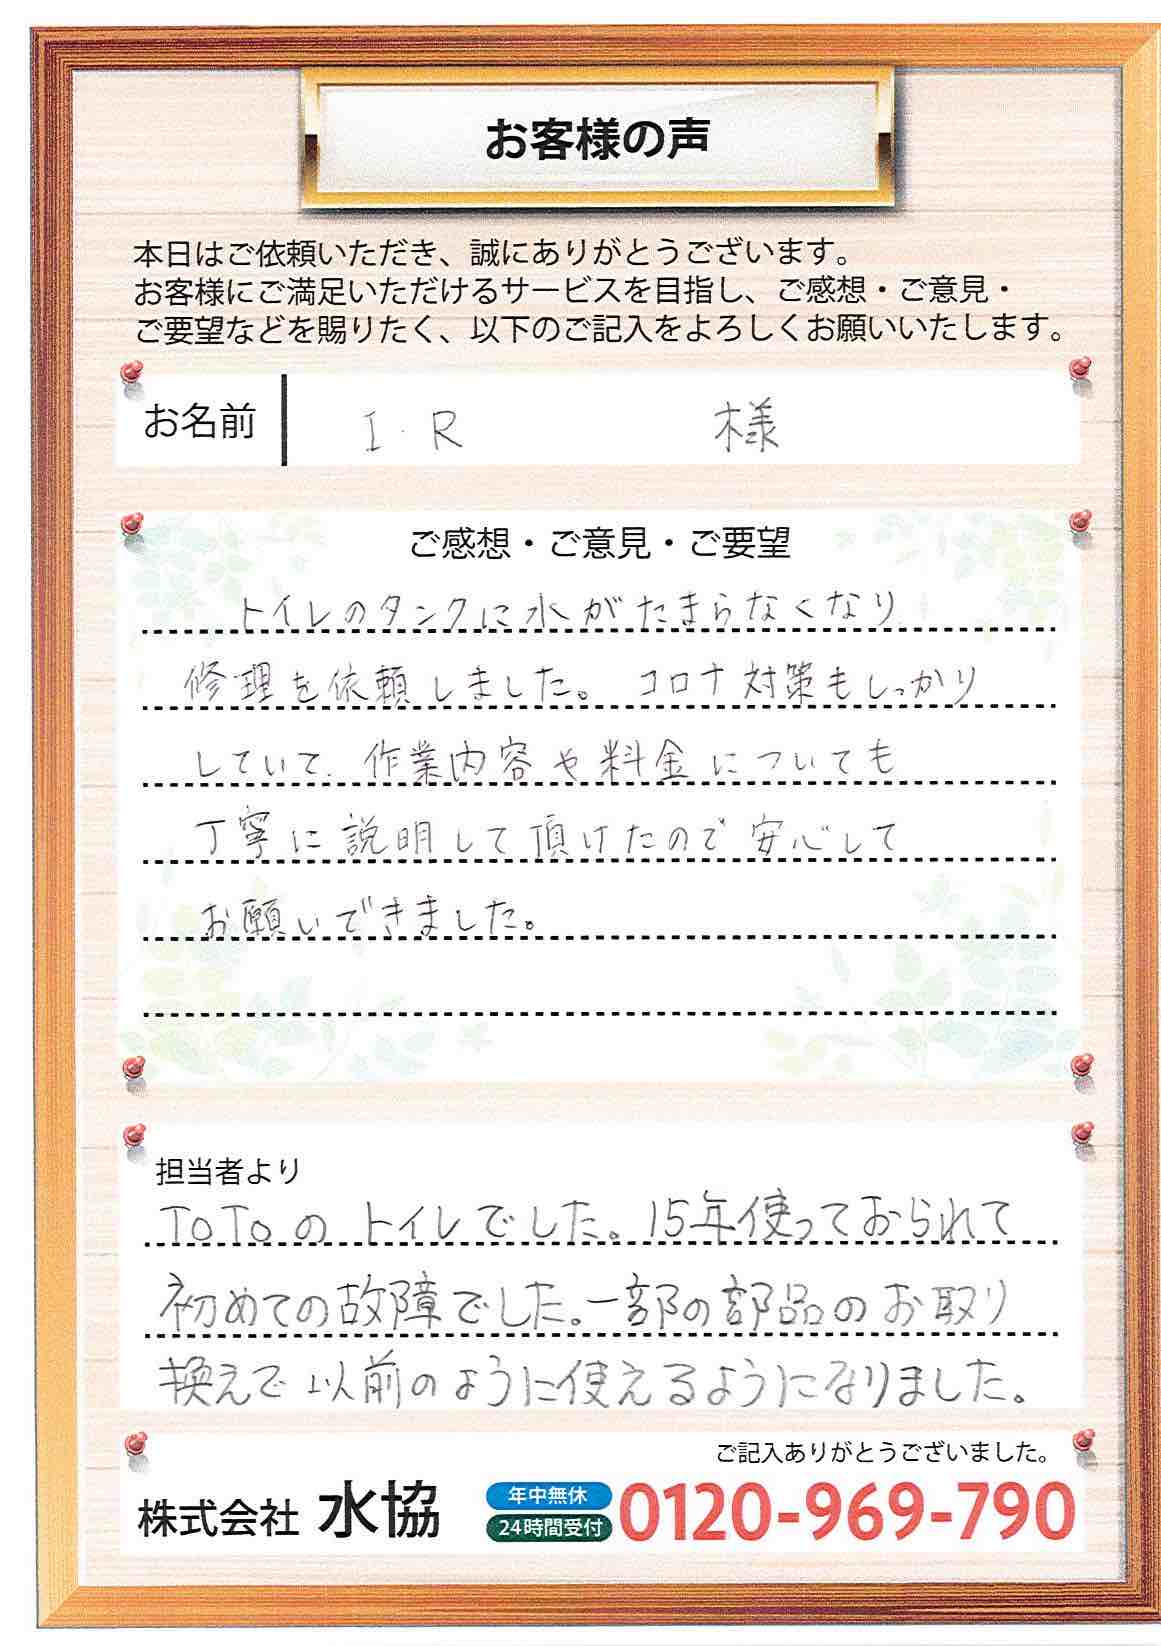 お客様の声
本日はご依頼いただき、誠にありがとうございます。
お客様にご満足いただけるサービスを目指し、ご感想・ご意見・
ご要望などを賜りたく、以下のご記入をよろしくお願いいたします。
お名前 I・R 様
ご感想・ご意見・ご要望
トイレのタンクに水がたまらなくなり
修理を依頼しました。コロナ対策もしっかり
していて、作業内容や料金についても
丁寧に説明して頂けたので安心して
お願いできました。
担当者より
TOTOのトイレでした。15年使っておられて
初めての故障でした。一部の部品のお取り
換えで以前のように使えるようになりました。
ご記入ありがとうございました。
株式会社 水協 年中無休 24時間受付 0120-969-790